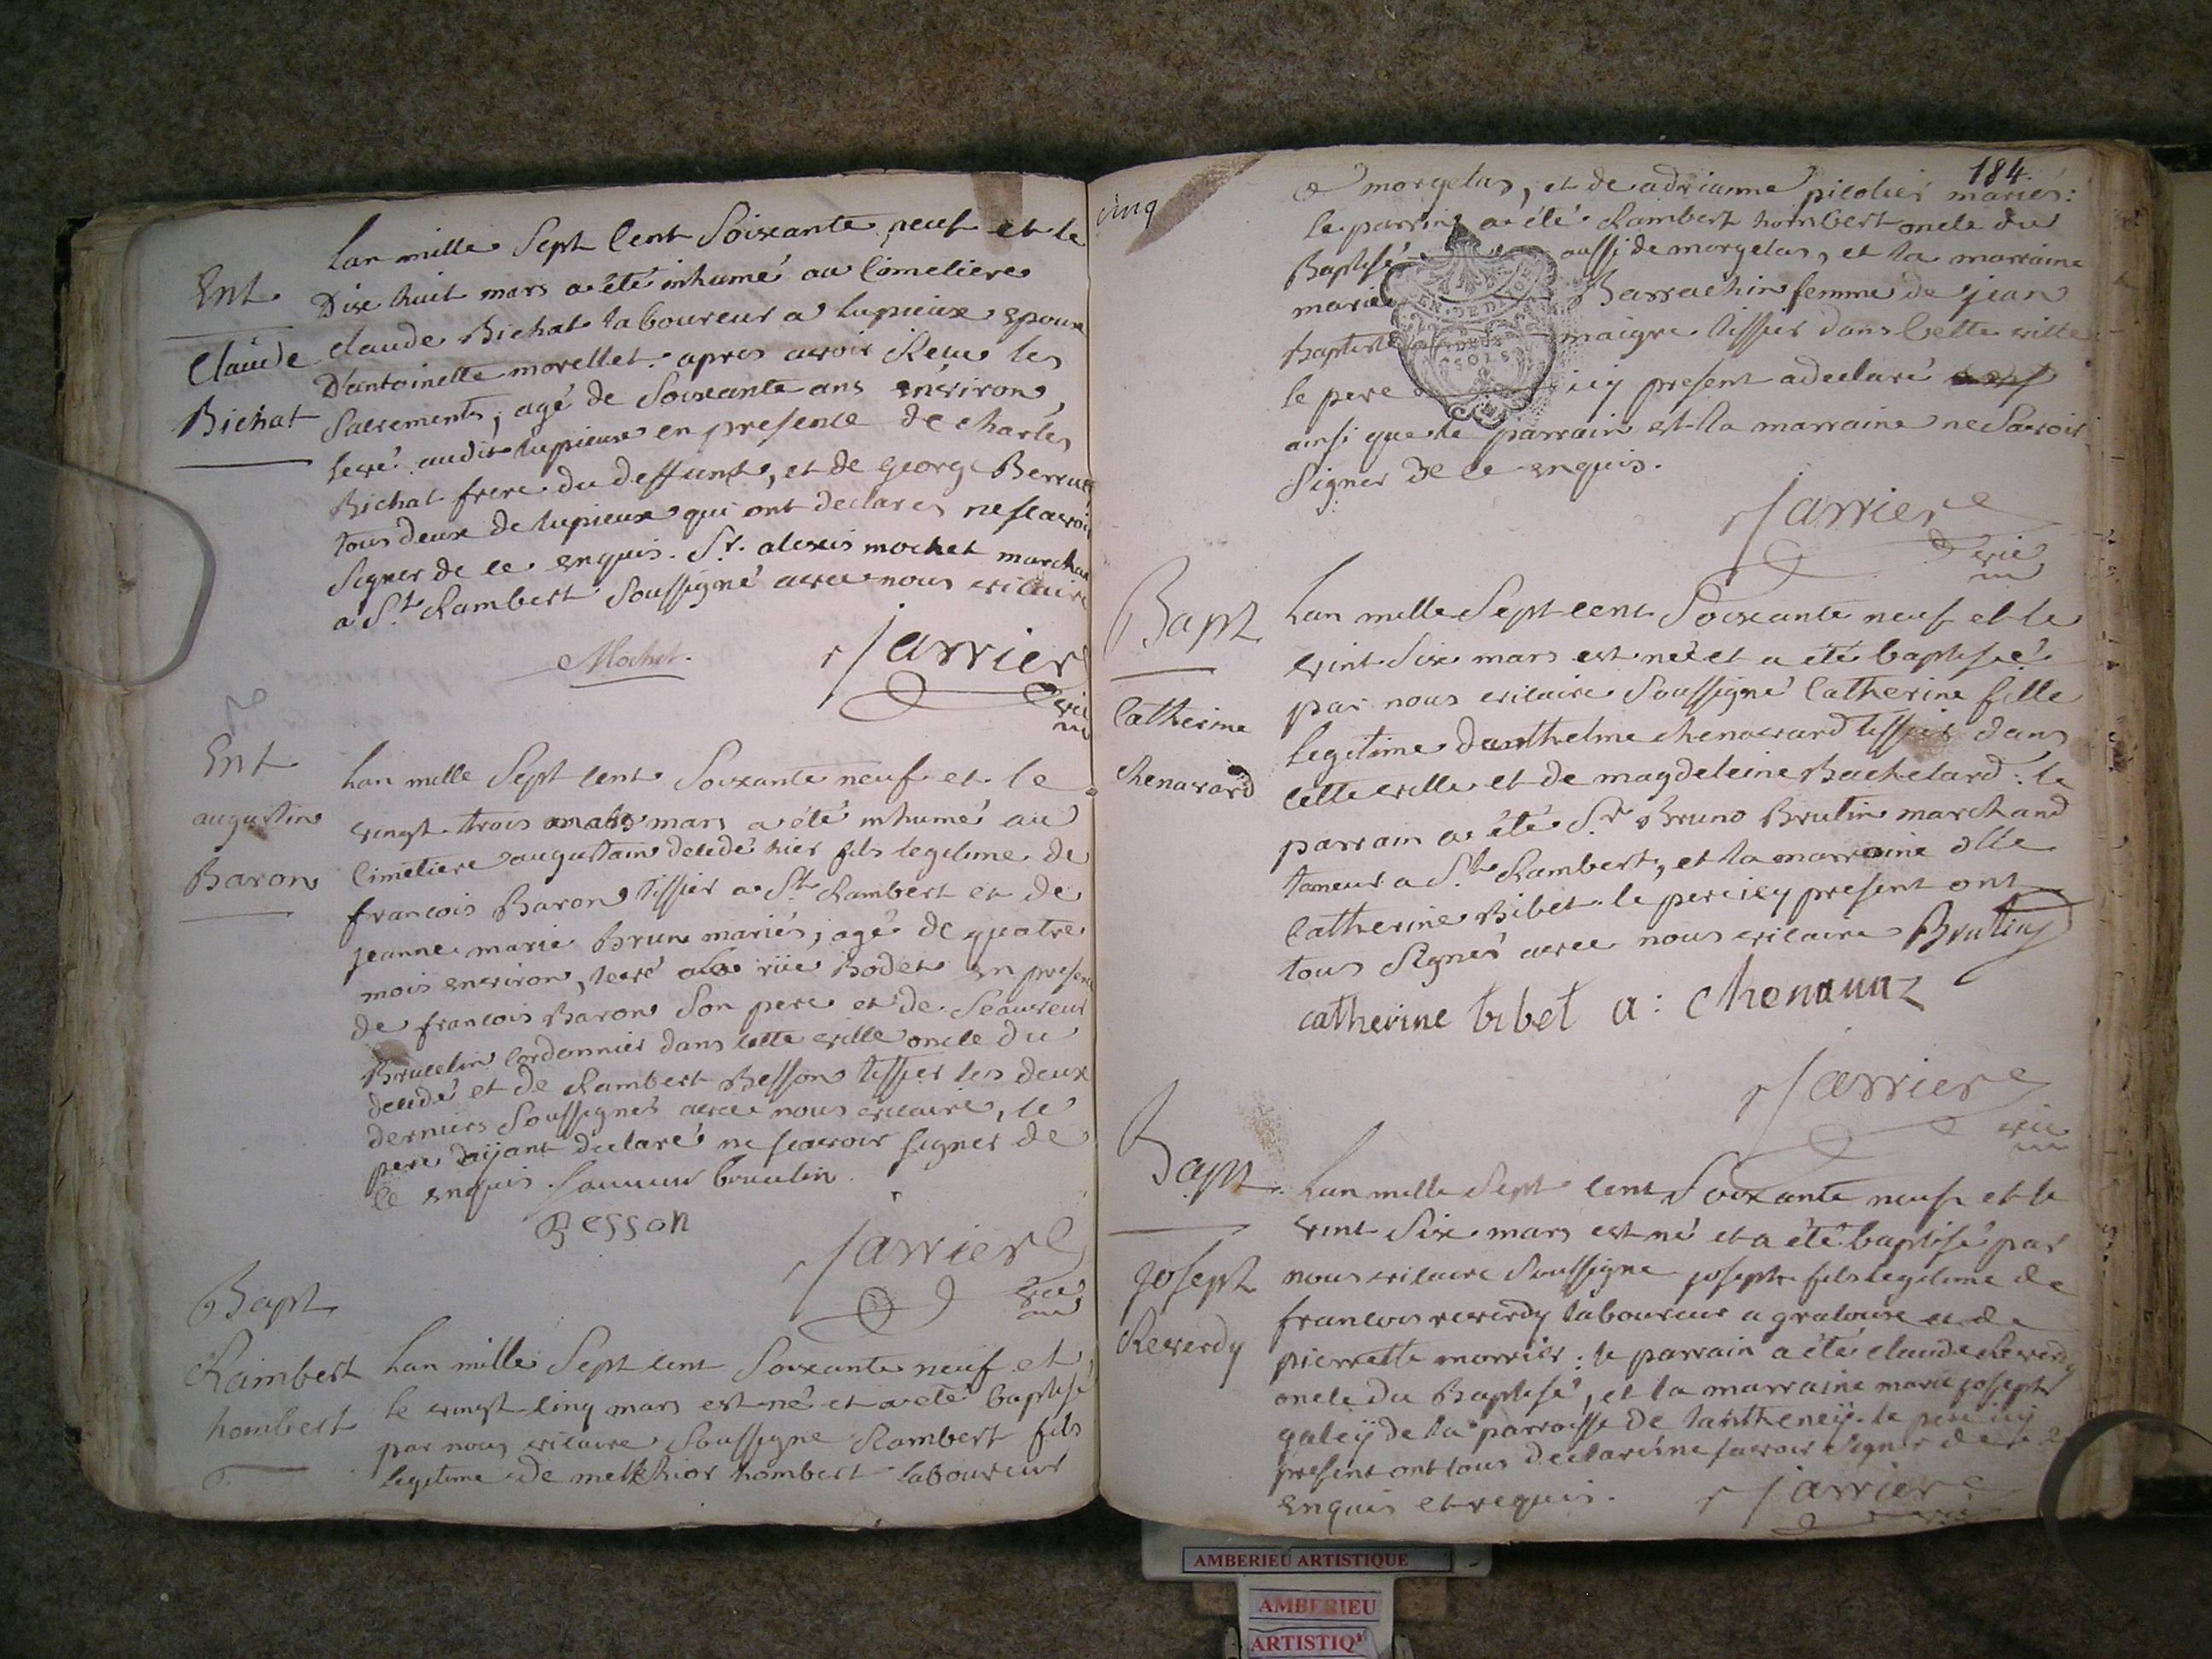 Ent
Claude
Bichat
Lan mille Sept Cent Soixante neuf et le
Dixe huit mars a été inhumé au Cimetiere
claude Bichat laboureur a lupieux epoux
D'antoinette morellet. apres avoir Reçu les
Sacrements, agé de Soixante ans environ,
levé audit lupieux en presence de charles
Bichat frere du deffunt, et de george
tous deux de lupieux qui ont declarés ne scavoir
Signer de ce enquis. Sr. alexis mochet marchan
a St. Rambert Soussigné avec nous vicaire
Mochet.
Jarrier
vic
Ent
augustin
Baron
Lan mille Sept cent Soixante neuf et le
vingt trois mars a été inhumé au
Cimetiere augustain decedé hier fils legitime de
francois Baron tissier a St. Rambert et de
jeanne marie Brun mariés, agé de quatre
mois environ, levé a la rüe Bodet en presen
de francois Baron Son pere et de Sauveur
Brucelin Cordonnier dans cette ville oncle du
decedé et de Rambert Besson tissier les deux
derniers Soussignés avec nous vicaire, le
pere aÿant declaré ne scavoir signer de
ce enquis. Sauveur brucelin
Besson
Jarrier
vic
Bapt
Raimbert
hombert
Lan mille Sept cent Soixante neuf et
le vingt cinq mars est né et a eté baptisé
par nous vicaire Soussigne Rambert fils
legitime de melkhior hombert laboureur
cinq
184.
a morgelas, et de adrianne picolier mariés:
le parrin a été Rambert hombert oncle du
Baptisé aussi de morgelas, et la marraine
marie Barrachin femme de jean
Baptiste maigre tissier dans Cette ville
le pere icy present a declaré
ainsi que le parrain et la marraine ne Savoir
Signer De ce enquis.
EN. DE DIJON
SOLS
Jarrier
vic
Bapt
Catherine
Chenavard
Lan mille Sept cent Soixante neuf et le
vint Six mars est neé et a été baptisée
par nous vicaire Soussigné Catherine fille
legitime danthelme chenavard tissier dans
cette ville et de magdeleine Bachelard: le
parrain a été Sr. Bruno Brutin marchand
taneur a St. Rambert, et la marraine dlle
Catherine Bibet. le pere icy present ont
tous Signés avec nous vicaire Brutin
catherine bibet a: chenauaz
Jarrier
vic
Bapt.
Joseph
Reverdy
Lan mille Sept cent Soixante neuf et le
vint Six mars est né et a été baptisé par
nous vicaire Soussigne joseph fils legitime de
francois reverdy laboureur a gratoux et de
pierrette morrier: le parrain a été claude Reverdy
oncle du Baptisé, et la marraine marie joseph
galeÿ de la parroisse de lantheneÿ. le pere icy
present ont tous declarés ne scavoir Signer de ce
enquis et requis.
Jarrier
AMBERIEU ARTISTIQUE
AMBERIEU
ARTISTIQ